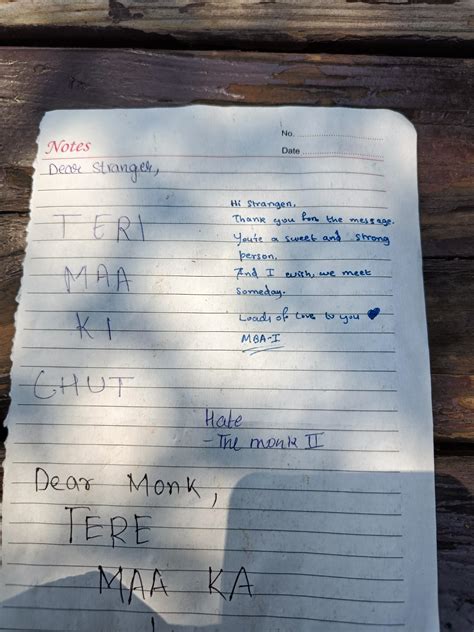 No. ....................
Notes
Date ....................
Dear Stranger,
TERI
MAA
KI
CHUT
Hi Stranger,
Thank you for the message.
You're a sweet and strong
person.
And I wish, we meet
someday.
Loads of love to you ♥
MBA-I
Hate
-The monk II
Dear Monk,
TERE
MAA KA